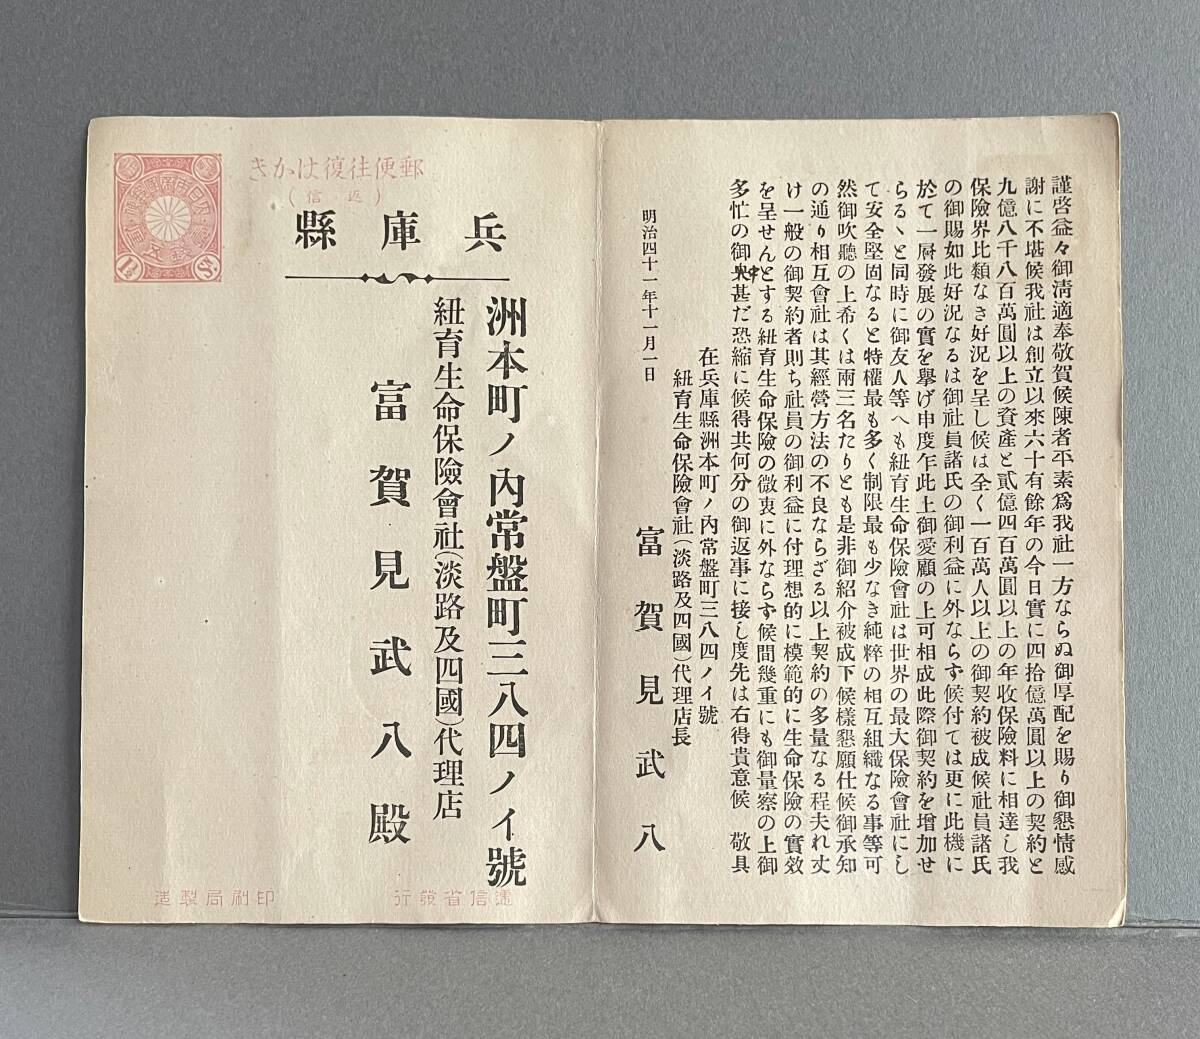 謹啓益々御淸適奉敬賀候陳者平素爲我社一方ならぬ御厚配を賜り御懇情感
謝に不堪候我社は創立以來六十有餘年の今日實に四拾億萬圓以上の契約と
九億八千八百萬圓以上の資產と貳億四百萬圓以上の年收保險料に相達し我
保險界比類なき好況を呈し候は全く一百萬人以上の御契約被成候社員諸氏
の御賜如此好況なるは御社員諸氏の御利益に外ならず候付ては更に此機に
於て一層發展の實を擧げ申度乍此上御愛顧の上可相成此際御契約を增加せ
らるヽと同時に御友人等へも紐育生命保險會社は世界の最大保險會社にし
て安全堅固なると特權最も多く制限最も少なき純粹の相互組織なる事等可
然御吹聽の上希くは兩三名たりとも是非御紹介被成下候樣懇願仕候御承知
の通り相互會社は其經營方法の不良ならざる以上契約の多量なる程夫れ丈
け一般の御契約者則ち社員の御利益に付理想的に模範的に生命保險の實效
を呈せんとする紐育生命保險の微衷に外ならず候間幾重にも御量察の上御
多忙の御中甚だ恐縮に候得共何分の御返事に接し度先は右得貴意候 敬具
明治四十一年十一月一日
在兵庫縣洲本町ノ內常盤町三八四ノイ號
紐育生命保險會社(淡路及四國)代理店長
富賀見武八
郵便往復はかき
(返信)
1½ Sn.
兵庫縣
洲本町ノ內常盤町三八四ノイ號
紐育生命保險會社(淡路及四國)代理店
富賀見武八殿
遞信省發行
印刷局製造